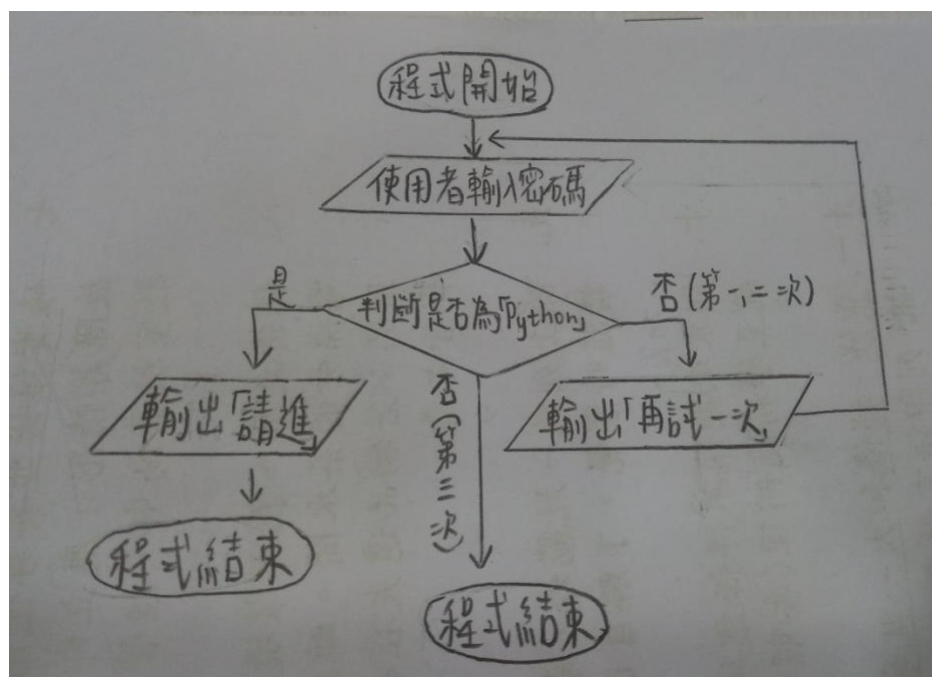 程式開始
使用者輸入密碼
判斷是否為「Python」
是
否(第一,二次)
否(第三次)
輸出「請進」
輸出「再試一次」
程式結束
程式結束